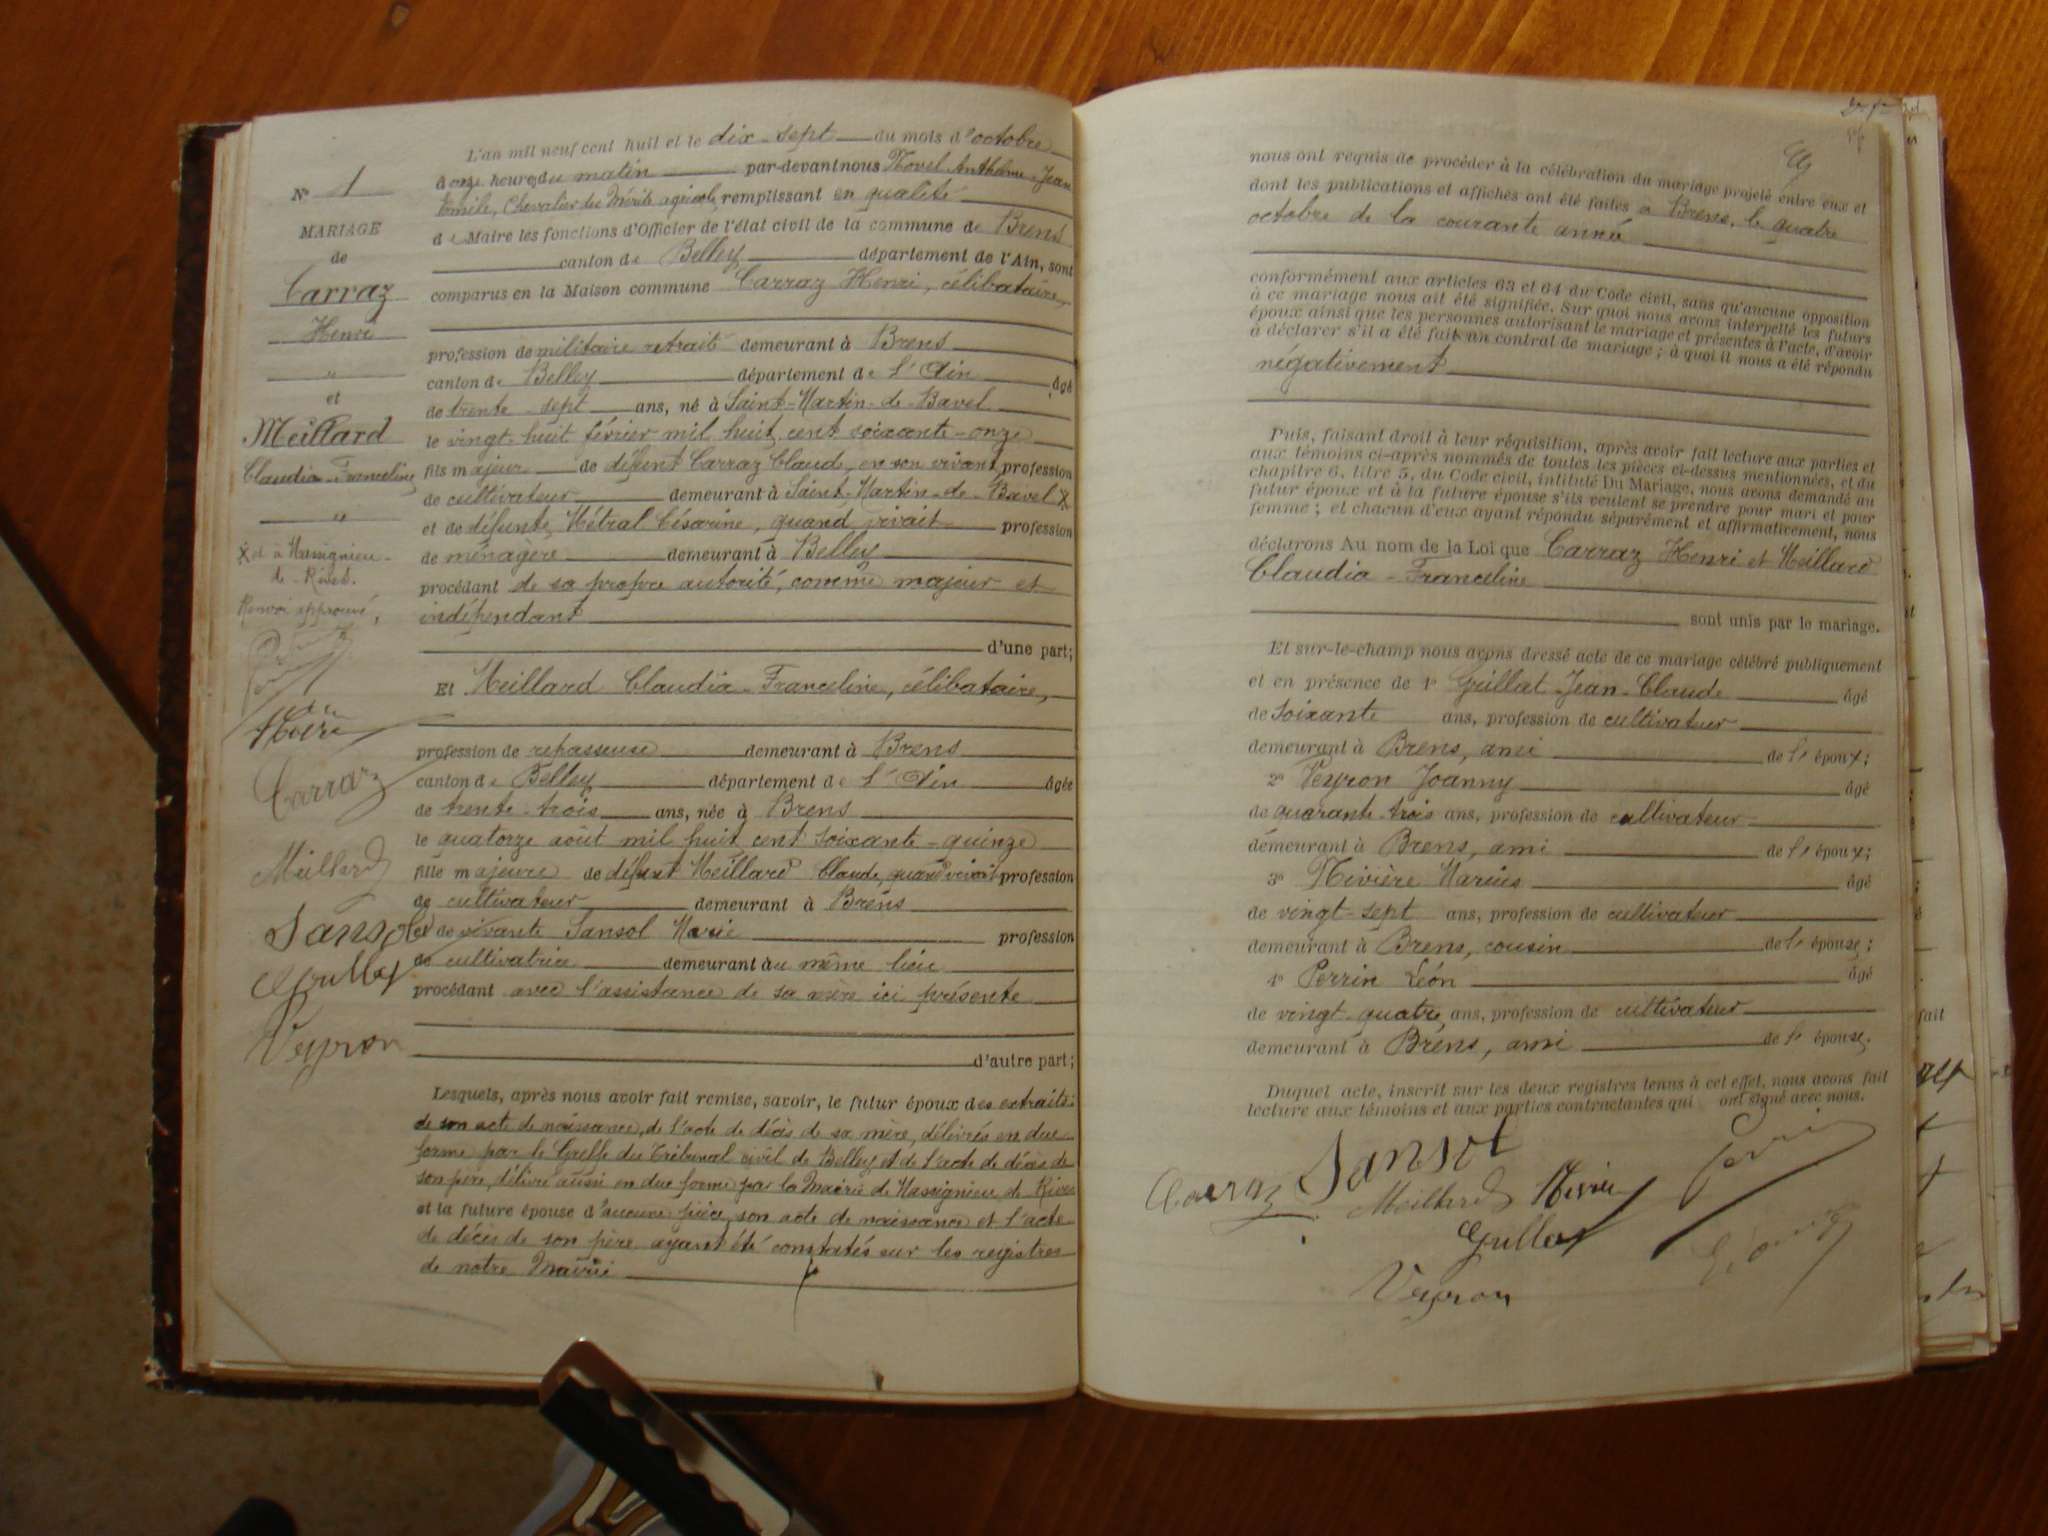 L'an mil neuf cent huit et le dix-sept du mois d'octobre
à onze heures du matin par-devant nous Anthelme-Jean
Emile, Chevalier du Mérite agricole, remplissant en qualité
de Maire les fonctions d'Officier de l'état civil de la commune de Brens
canton de Belley département de l'Ain, sont
comparus en la Maison commune Carraz Henri, célibataire,
profession de militaire retraité demeurant à Brens
canton de Belley département de l'Ain âgé
de trente-sept ans, né à Saint-Martin-de-Bavel
le vingt-huit février mil huit cent soixante-onze
fils majeur de défunt Carraz Claude, en son vivant, profession
de cultivateur demeurant à Saint-Martin-de-Bavel X
et de défunte Métral Césarine, quand vivait profession
de ménagère demeurant à Belley
procédant de sa propre autorité, comme majeur et
indépendant
d'une part;
Et Meillard Claudia-Franceline, célibataire,
profession de repasseuse demeurant à Brens
canton de Belley département de l'Ain âgée
de trente-trois ans, née à Brens
le quatorze août mil huit cent soixante-quinze
fille majeure de défunt Meillard Claude, quand vivait profession
de cultivateur demeurant à Brens
et de vivante Sansol Marie profession
de cultivatrice demeurant au même lieu
procédant avec l'assistance de sa mère ici présente
d'autre part;
Lesquels, après nous avoir fait remise, savoir, le futur époux des extraits
de son acte de naissance, de l'acte de décès de sa mère, délivrés en due
forme par le Greffe du Tribunal civil de Belley et de l'acte de décès de
son père, délivré aussi en due forme par la Mairie de Massignieu de Rives
et la future épouse d'aucune pièce, son acte de naissance et l'acte
de décès de son père ayant été constatés sur les registres
de notre Mairie
N° 1
MARIAGE
de
Carraz
Henri
"
et
Meillard
Claudia-Franceline
"
X et à Massignieu-
de-Rives.
Renvoi approuvé,
Carraz
Meillard
Sansol
Guillat
Veyron
nous ont requis de procéder à la célébration du mariage projeté entre eux et
dont les publications et affiches ont été faites à Brens, le quatre
octobre de la courante année
conformément aux articles 63 et 64 du Code civil, sans qu'aucune opposition
à ce mariage nous ait été signifiée. Sur quoi nous avons interpellé les futurs
époux ainsi que les personnes autorisant le mariage et présentes à l'acte, d'avoir
à déclarer s'il a été fait un contrat de mariage; à quoi il nous a été répondu
négativement
Puis, faisant droit à leur réquisition, après avoir fait lecture aux parties et
aux témoins ci-après nommés de toutes les pièces ci-dessus mentionnées, et du
chapitre 6, titre 5, du Code civil, intitulé Du Mariage, nous avons demandé au
futur époux et à la future épouse s'ils veulent se prendre pour mari et pour
femme; et chacun d'eux ayant répondu séparément et affirmativement, nous
déclarons Au nom de la Loi que Carraz Henri et Meillard
Claudia-Franceline
sont unis par le mariage.
Et sur-le-champ nous avons dressé acte de ce mariage célébré publiquement
et en présence de 1° Guillat Jean-Claude âgé
de soixante ans, profession de cultivateur
demeurant à Brens, ami de l'époux;
2° Veyron Joanny âgé
de quarante-trois ans, profession de cultivateur
demeurant à Brens, ami de l'époux;
3° Rivière Marius âgé
de vingt-sept ans, profession de cultivateur
demeurant à Brens, cousin de l'épouse;
4° Perrin Léon âgé
de vingt-quatre ans, profession de cultivateur
demeurant à Brens, ami de l'épouse.
Duquel acte, inscrit sur les deux registres tenus à cet effet, nous avons fait
lecture aux témoins et aux parties contractantes qui ont signé avec nous.
Carraz Sansol
Meillard
Guillat
Veyron
fait